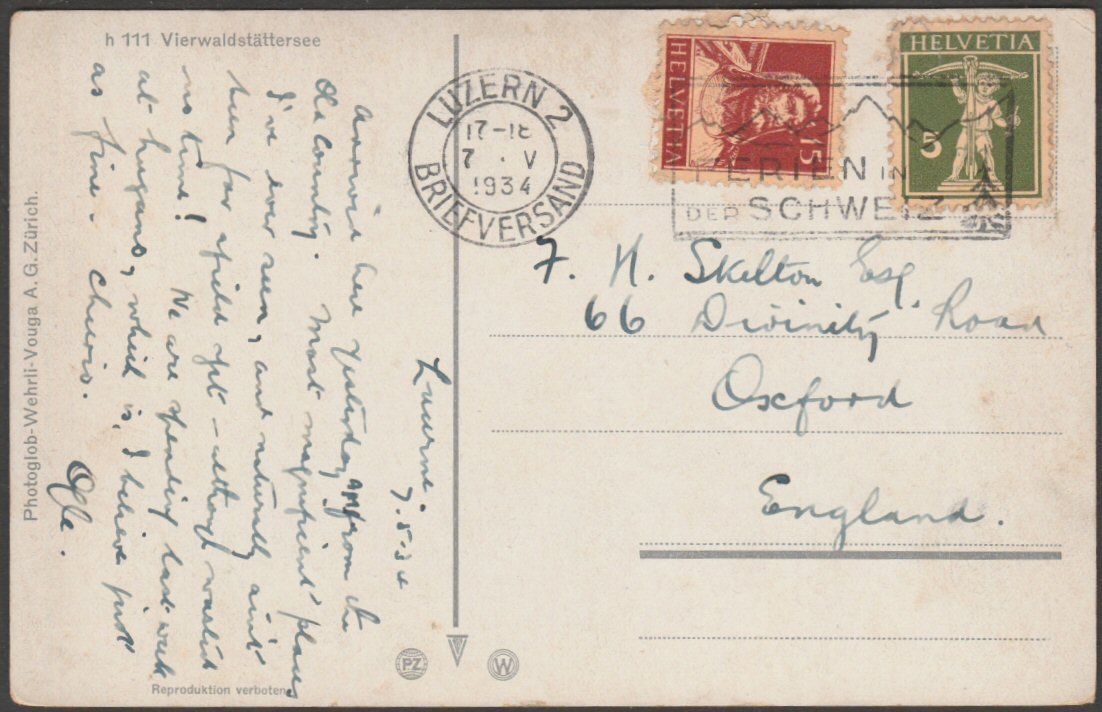 h 111 Vierwaldstättersee
Lucerne.
7.5.34
Arrived here yesterday from the
old country. Most magnificent place
I've ever seen, and naturally aint
been far afield yet – although wasted
no time! We are spending last week
at Lugano, which is, I believe just
as fine. Cheerio.
Photoglob-Wehrli-Vouga A. G. Zürich.
Reproduktion verboten
LUZERN 2
17-18
7. V
1934
BRIEFVERSAND
HELVETIA
15
HELVETIA
5
FERIEN IN
DER SCHWEIZ
F. H. Skelton Esq.
66 Divinity Road
Oxford
England.
PZ
W